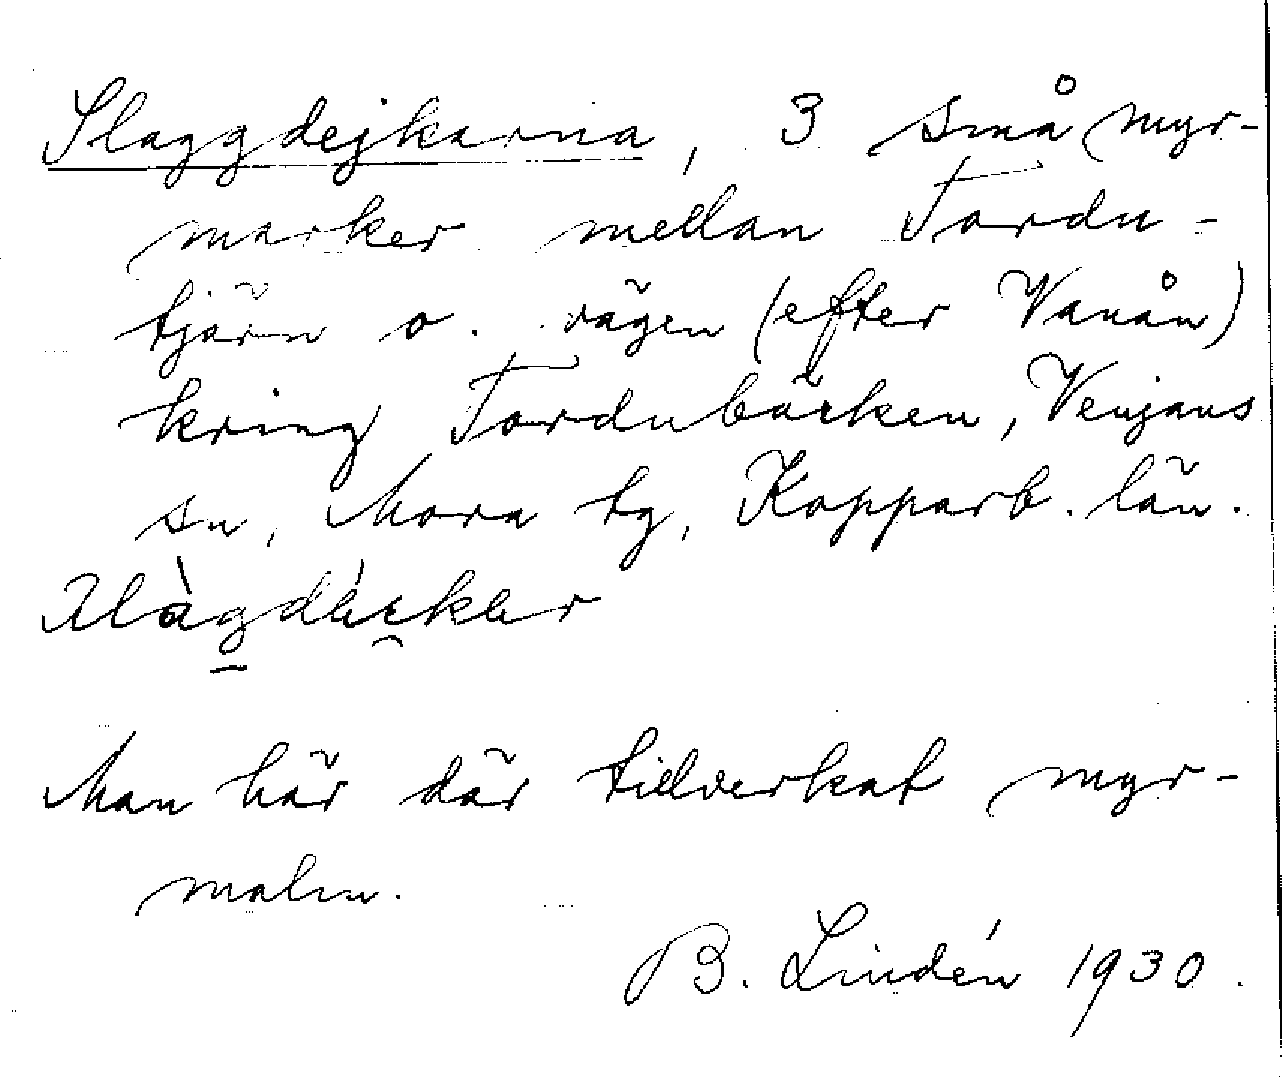 Slaggdejkarna, 3 små myr-
marker mellan Tordu-
tjärn o. vägen (efter Vanån)
kring Tordubäcken, Venjans
sn, Mora tg, Kopparb. län.
Man här där tillverkat myr-
malm.
B. Lindén 1930.